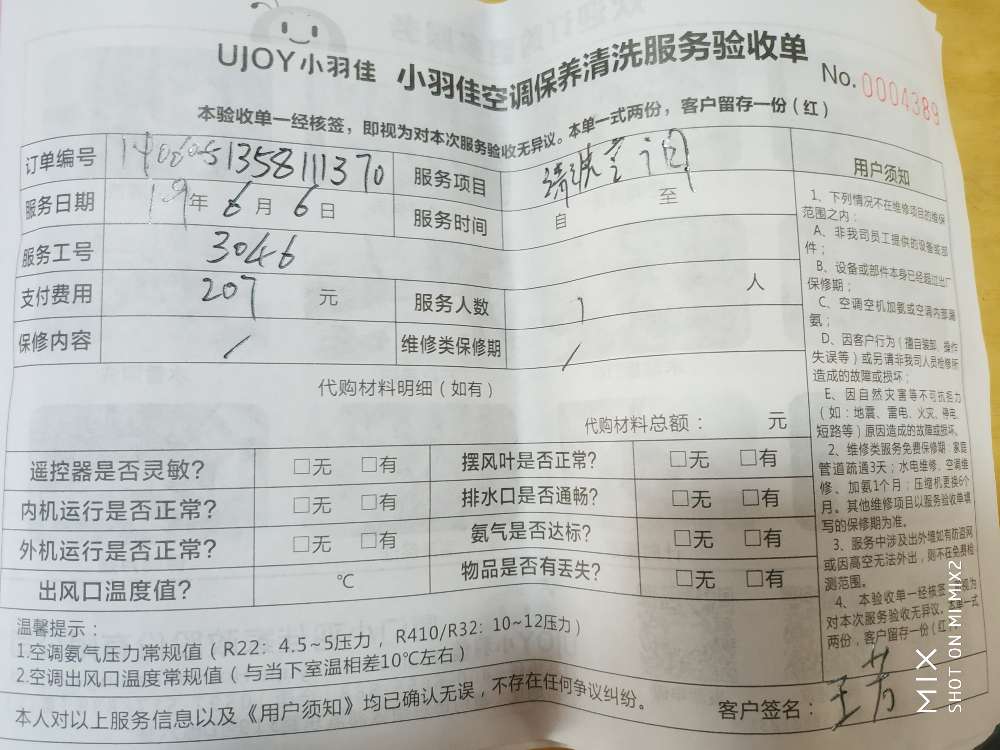 UJOY小羽佳 小羽佳空调保养清洗服务验收单 No. 0004389
本验收单一经核签，即视为对本次服务验收无异议。本单一式两份，客户留存一份（红）
订单编号 服务项目 清洗空调
服务日期 19年6月6日 服务时间 自 至
服务工号 3046
支付费用 207 元 服务人数 1 人
保修内容 / 维修类保修期 /
代购材料明细（如有）
代购材料总额： 元
遥控器是否灵敏? □无 □有 摆风叶是否正常? □无 □有
内机运行是否正常? □无 □有 排水口是否通畅? □无 □有
外机运行是否正常? □无 □有 氨气是否达标? □无 □有
出风口温度值? ℃ 物品是否有丢失? □无 □有
温馨提示：
1.空调氨气压力常规值（R22：4.5~5压力，R410/R32：10~12压力）
2.空调出风口温度常规值（与当下室温相差10℃左右）
本人对以上服务信息以及《用户须知》均已确认无误，不存在任何争议纠纷。
客户签名：王芳
用户须知
1、下列情况不在维修项目的维保
范围之内：
A、非我司员工提供的设备或部
件；
B、设备或部件本身已经超过出厂
保修期；
C、空调空机加氨或空调内部漏
氨；
D、因客户行为（擅自装卸、操作
失误等）或另请非我司人员检修所
造成的故障或损坏；
E、因自然灾害等不可抗拒力
（如：地震、雷电、火灾、停电、
短路等）原因造成的故障或损坏。
2、维修类服务免费保修期：家庭
管道疏通3天；水电维修、空调维
修、加氨1个月；压缩机更换6个
月。其他维修项目以服务验收单填
写的保修期为准。
3、服务中涉及出外墙如有防盗网
或因高空无法外出，则不在免费检
测范围。
4、本验收单一经核签 视为
对本次服务验收无异议，本单一式
两份，客户留存一份（红
MIX
SHOT ON MI MIX2